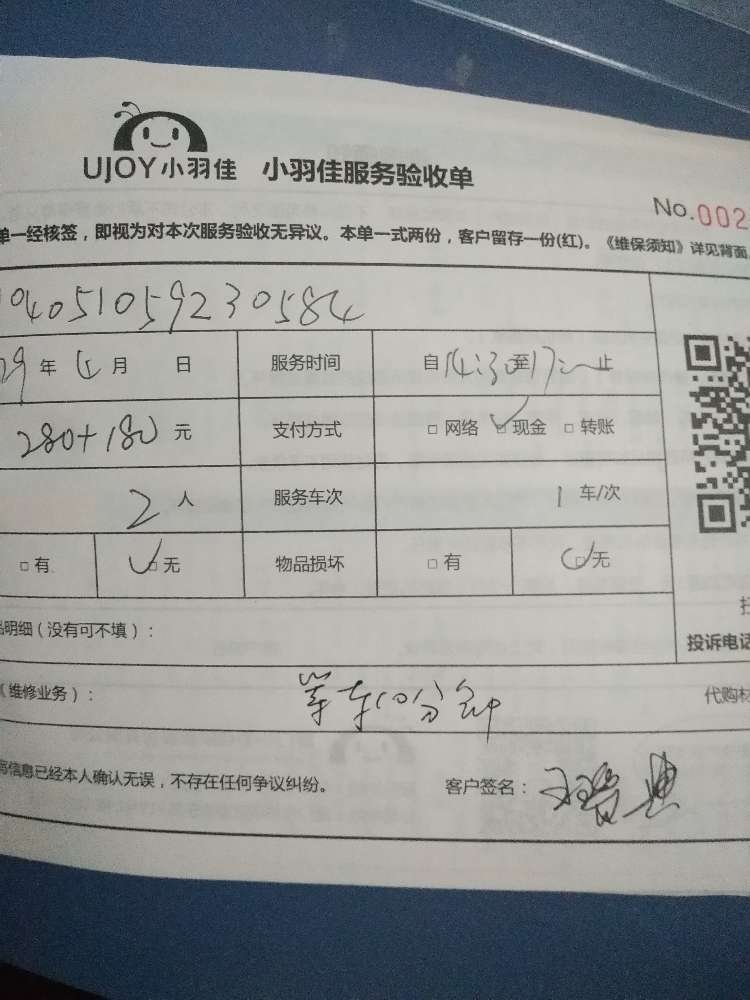 UJOY小羽佳 小羽佳服务验收单
No.002
单一经核签，即视为对本次服务验收无异议。本单一式两份，客户留存一份(红)。《维保须知》详见背面
040510592230584
年 月 日 服务时间 自14:30至17:止
280+180元 支付方式 □ 网络 □ 现金 □ 转账
2人 服务车次 1车/次
□ 有 □ 无 物品损坏 □ 有 □ 无
明细（没有可不填）：
投诉电话
（维修业务）： 等车10分钟 代购材
信息已经本人确认无误，不存在任何争议纠纷。 客户签名：